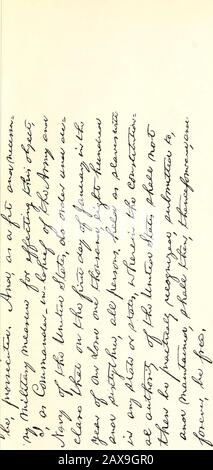 be, prosecuted. And, as a fit and necessa-
ry military measure for effecting this object,
I, as Commander-in-Chief of the Army and
Navy of the United States, do order and de-
clare that on the first day of January in the
year of our Lord one thousand, eight hundred
and sixtythree, all persons held as slaves within
any state or states, wherein the constitution-
al authority of the United States shall not
then be practically recognized, submitted to,
and maintained, shall then, thenceforward, and
forever, be free.
2AX9GR0